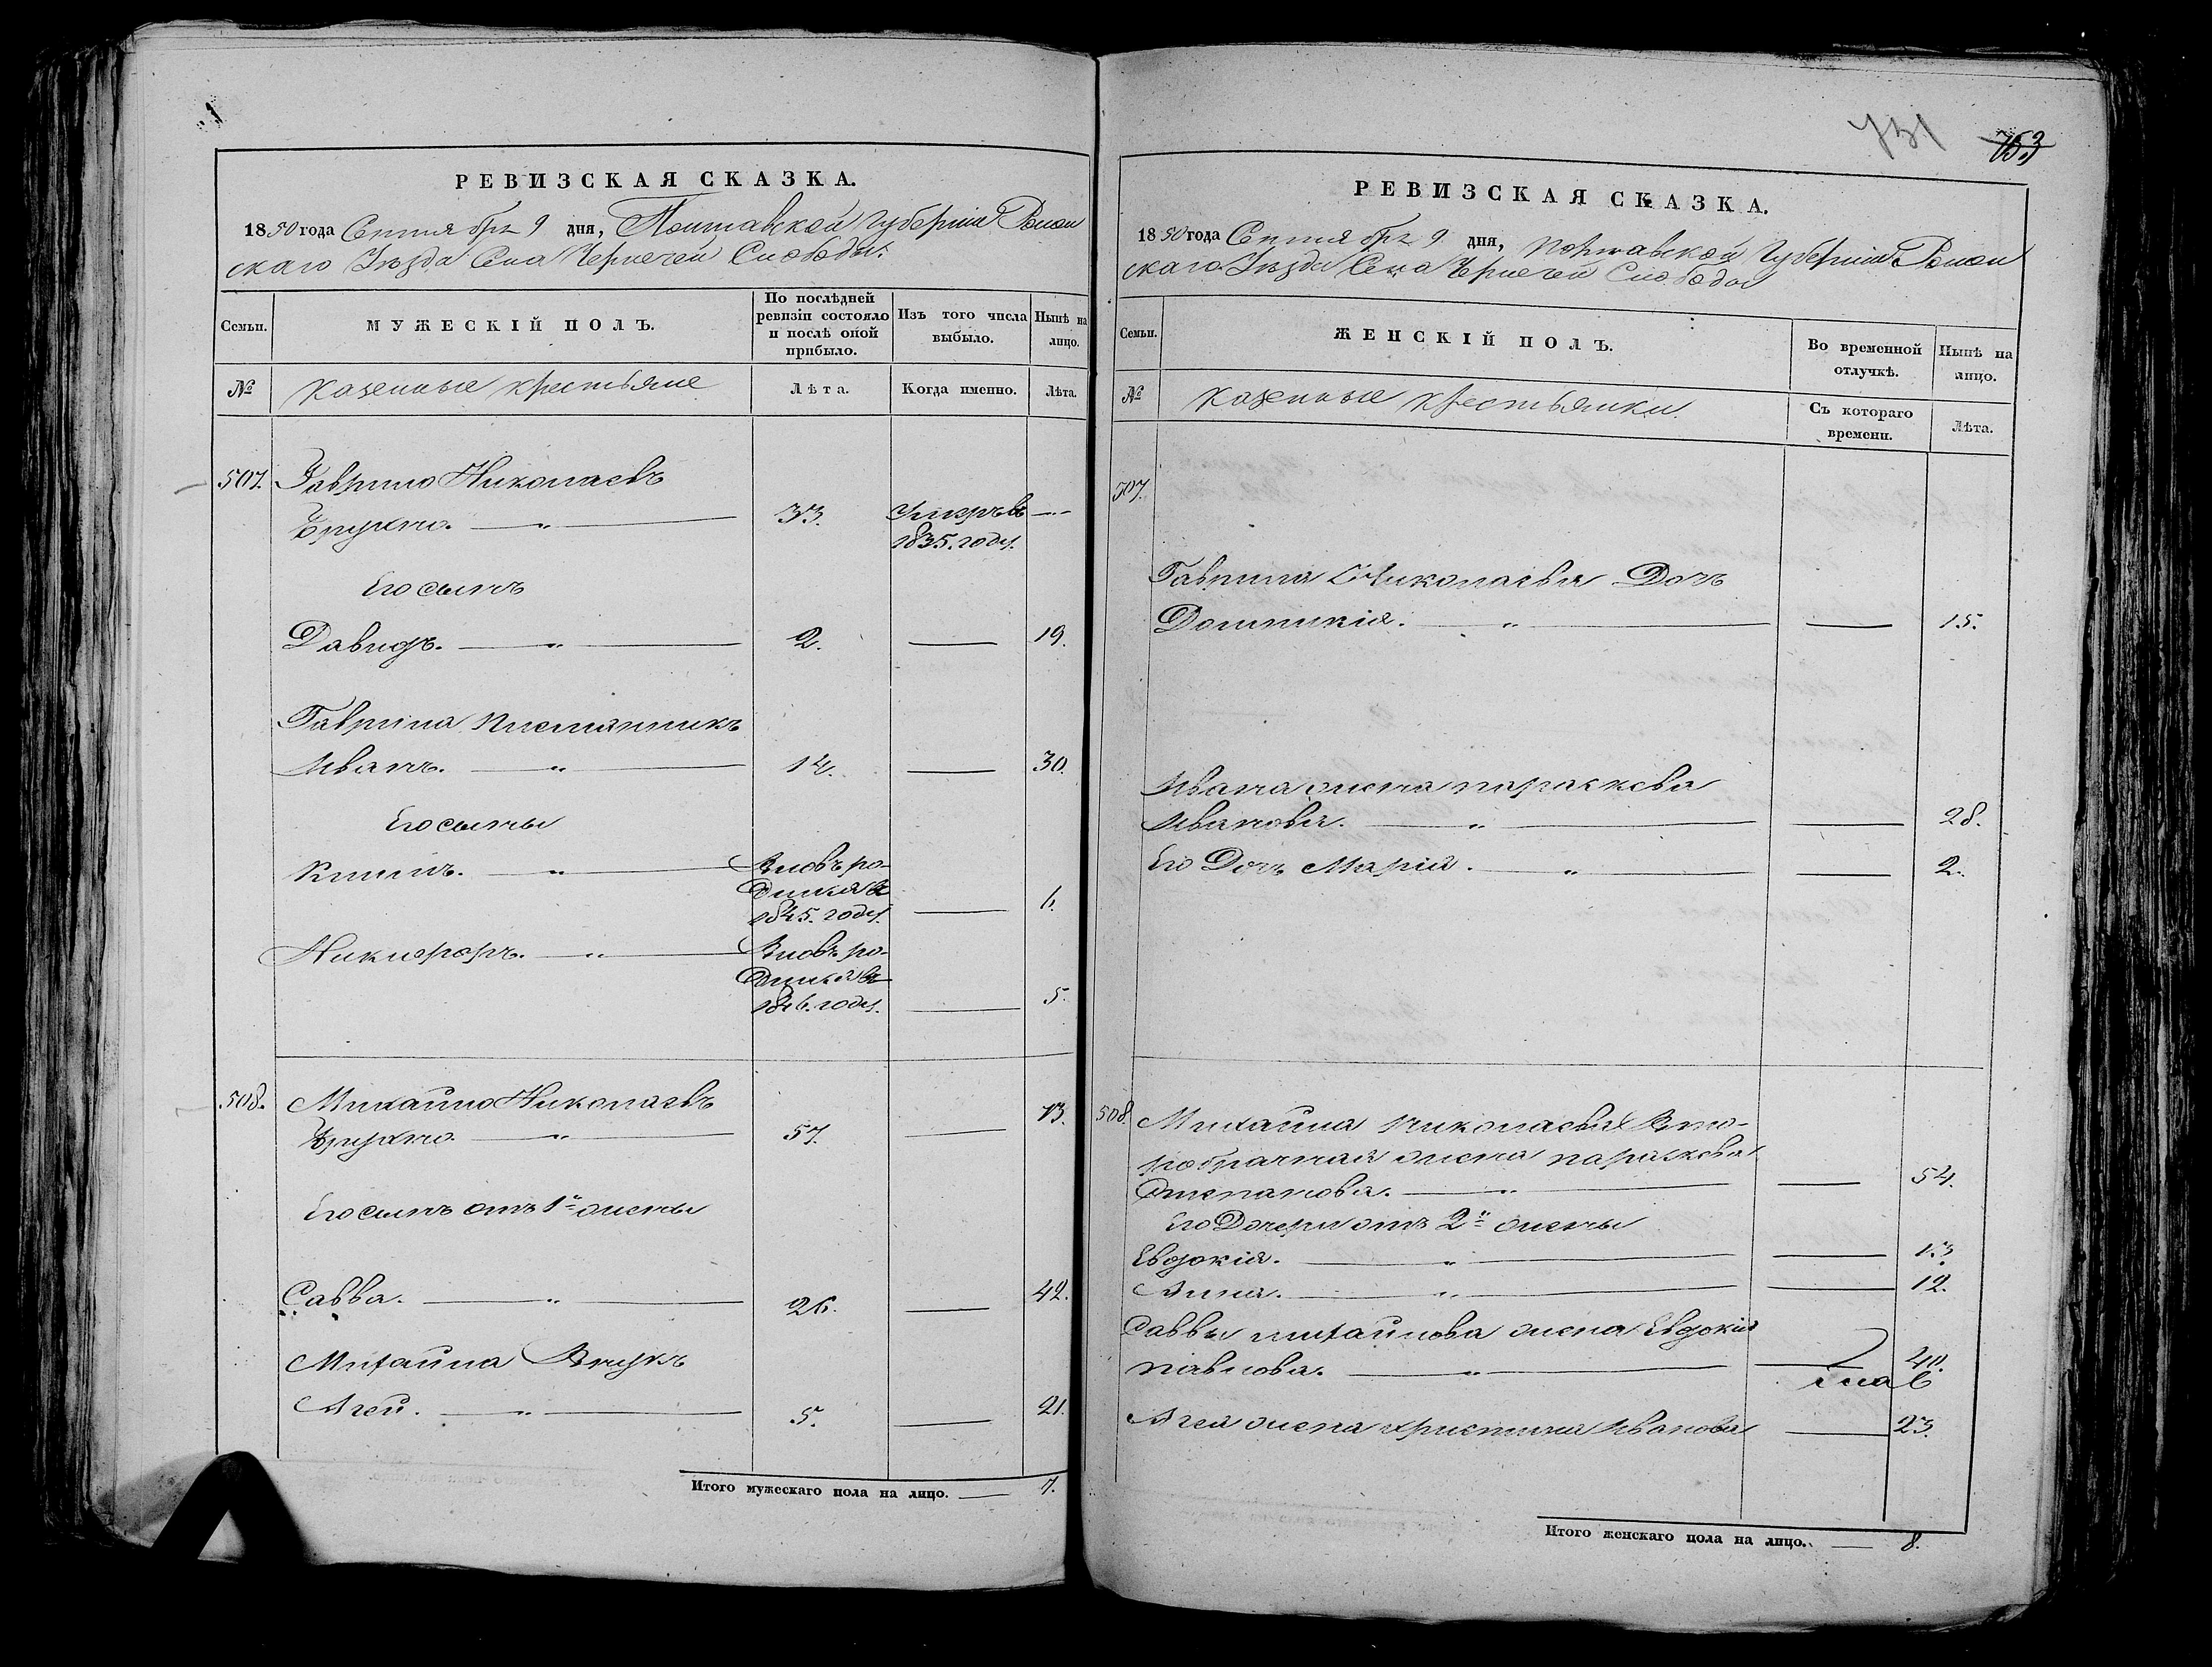 РЕВИЗСКАЯ СКАЗКА.
1850 года Сентября 9 дня, Полтавской Губернии Ромен
скаго Уезда Села Чернечей Слободы.
Семьи.
МУЖЕСКІЙ ПОЛЪ.
По послѣдней ревизіи состояло и послѣ оной прибыло.
Изъ того числа выбыло.
Нынѣ на лицо.
№
Казенные крестьяне
Лѣта.
Когда именно.
Лѣта.
507. Гаврило Николаевъ
33. Умеръ в — 1835. году.
Его сынъ
Давидъ. — " — 2. — 19.
Гаврила племянникъ
Иванъ. — " — 14. — 30.
Его сыны
Климъ. — " — Вновь ро-
дился в
1845. году. — 6.
Никифоръ. — " — Вновь ро-
дился в
1846. году. — 5.
508. Михайло Николаевъ
— " — 57. — 73.
Его сынъ отъ 1й жены
Савва. — " — 26. — 42.
Михайла Внукъ
Агей. — " — 5. — 21.
Итого мужескаго пола на лицо. — 7.
731 753
РЕВИЗСКАЯ СКАЗКА.
1850 года Сентября 9 дня, Полтавской Губернии Ромен
скаго Уезда Села Чернечей Слободы
Семьи.
ЖЕНСКІЙ ПОЛЪ.
Во временной отлучкѣ.
Нынѣ на лицо.
№
Казенные крестьянки.
Съ котораго времени.
Лѣта.
507.
Гаврила Николаева Дочь
Домникия. — " — — 15.
Ивана жена Параскева
Иванова. — " — — 28.
Его Дочь Мария. — " — — 2.
508. Михайла Николаева Вто-
робрачная жена Параскева
Степанова. — " — — 54.
Его Дочери отъ 2й жены
Евдокия. — " — — 13.
Анна. — " — — 12.
Саввы Михайлова жена Евдокия
Павлова. — " — — 40.
Агея жена Христина Иванова — 23.
Итого женскаго пола на лицо. — 8.